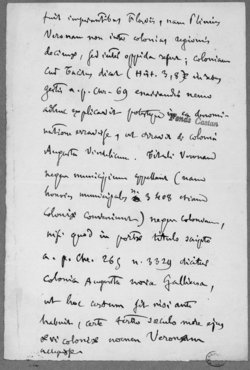 fuit imperantibus Flaviis, nam Plinius
Veronam non inter colonias regionis
decimae, sed inter oppida refert; coloniam
cur Tacitus dicat (Hist. 3, 8) in rebus
gestis a. p. Chr. 69 enarrandis nemo
adhuc explicavit
nominatione errasse, ut erravit de colonia
Augusta Vindelicum. Tituli Veronam
neque municipium appellant (nam
honores municipales n. 3408 etiam
coloniae conveniunt) neque coloniam,
nisi quod in portae titulo scripto
a. p. Chr. 265 n. 3329 dicitur
colonia Augusta nova Galliena,
ut hoc certum sit
habuit, certe tertio saeculo
coloniae nomen Veronam
accepisse